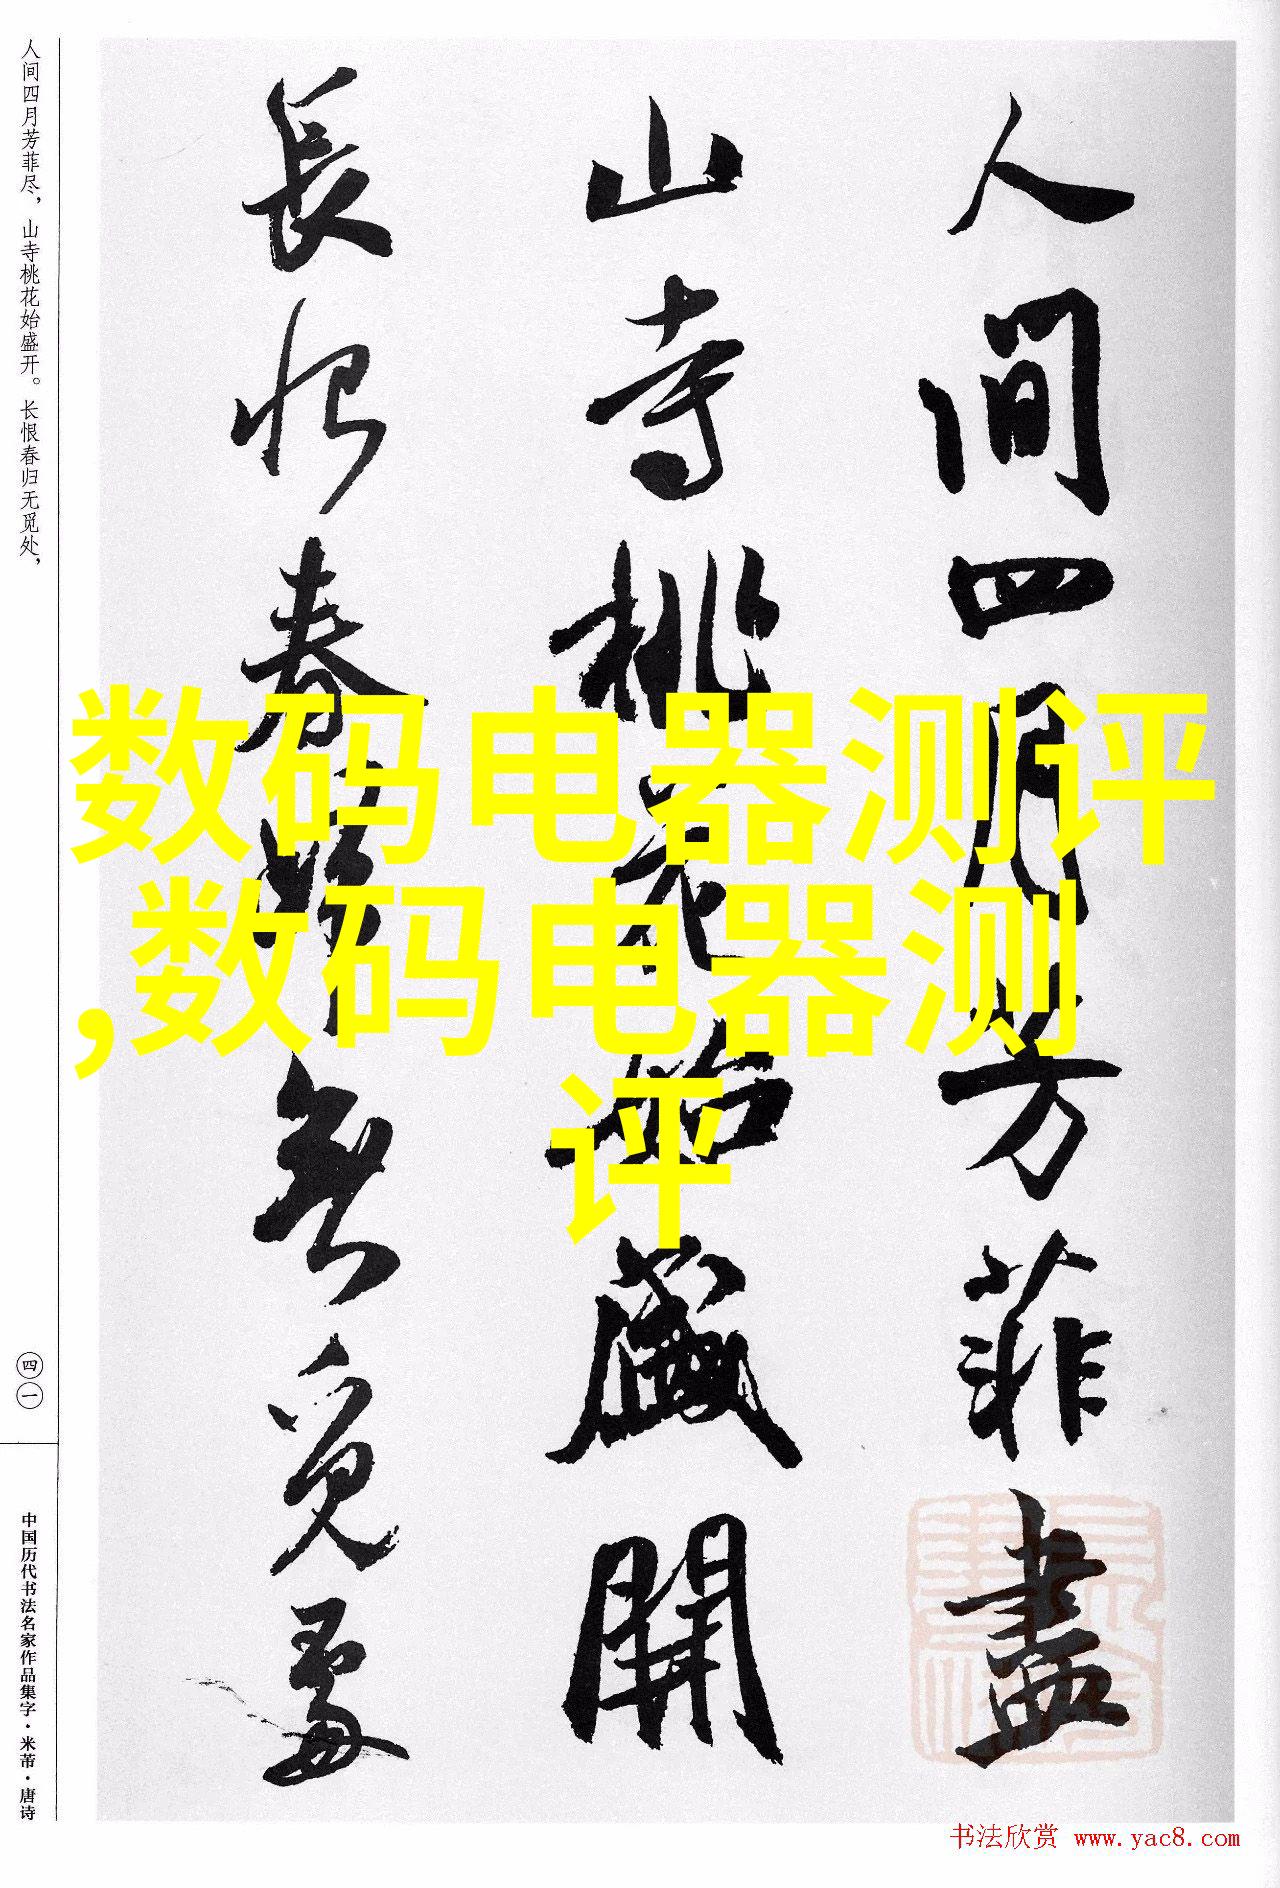 人间四月芳菲尽，山寺桃花始盛开。长恨春归无觅处，
四一
中国历代书法名家作品集字·米芾·唐诗
人間四月芳菲盡
山寺桃花始盛開
長恨春歸無覓處
数码电器测评
,数码电器测
评
书法欣赏 www.yac8.com